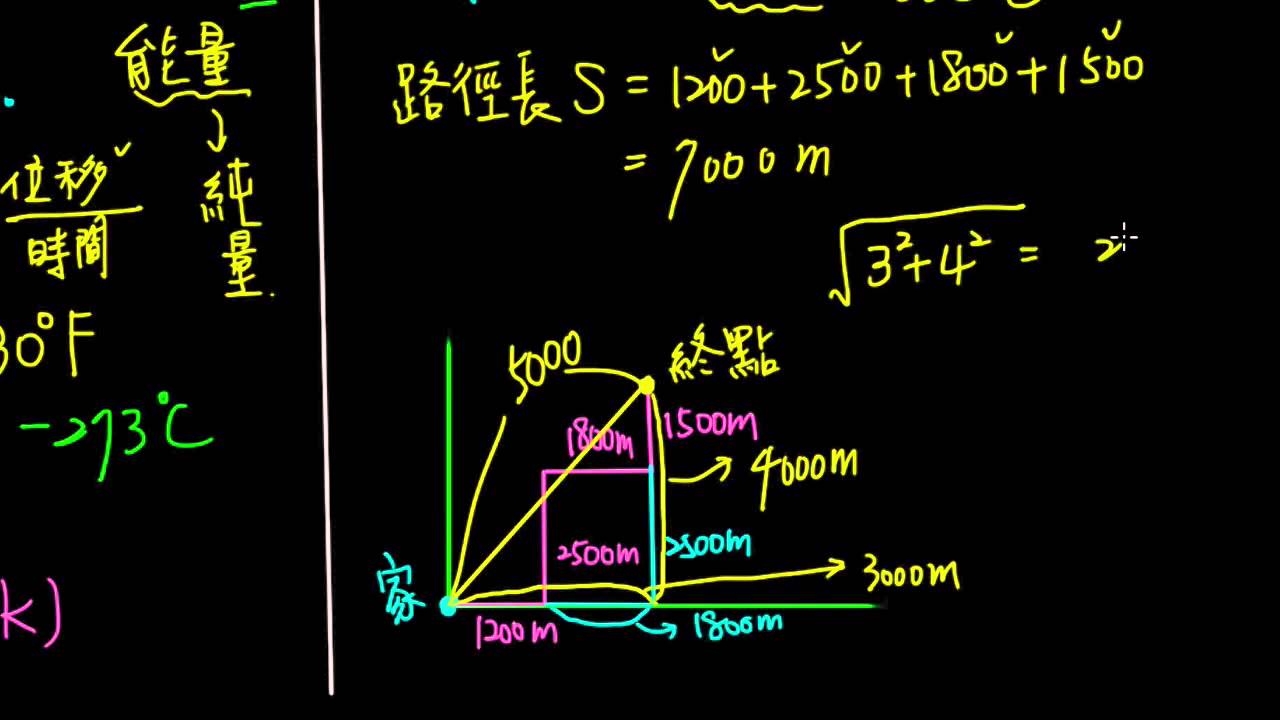 能量
↓
純量
位移
時間
30°F
-273°C
k)
路徑長 S = 1200+2500+1800+1500
= 7000 m
√3²+4² = 2
5000
終點
1500m
1800m
→ 4000m
2500m
2500m
→ 3000m
家
1200m
→ 1800m